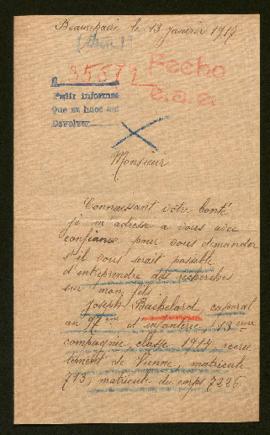 Beaurepaire le 13 janvier 1917
(Isère)
35579
Fecho
Pedir informes
Que se hace en
Devolver
Monsieur
Connaissant votre bonté
je m'adresse a vous avec
confiance pour vous demander
s'il vous serait possible
d'entreprendre des recherches
sur mon fils
Joseph Bachelard, caporal
au 97ème d'infanterie, 13ème
compagnie classe 1914 recru-
tement de Vienne, matricule
793, matricule du corps 7226